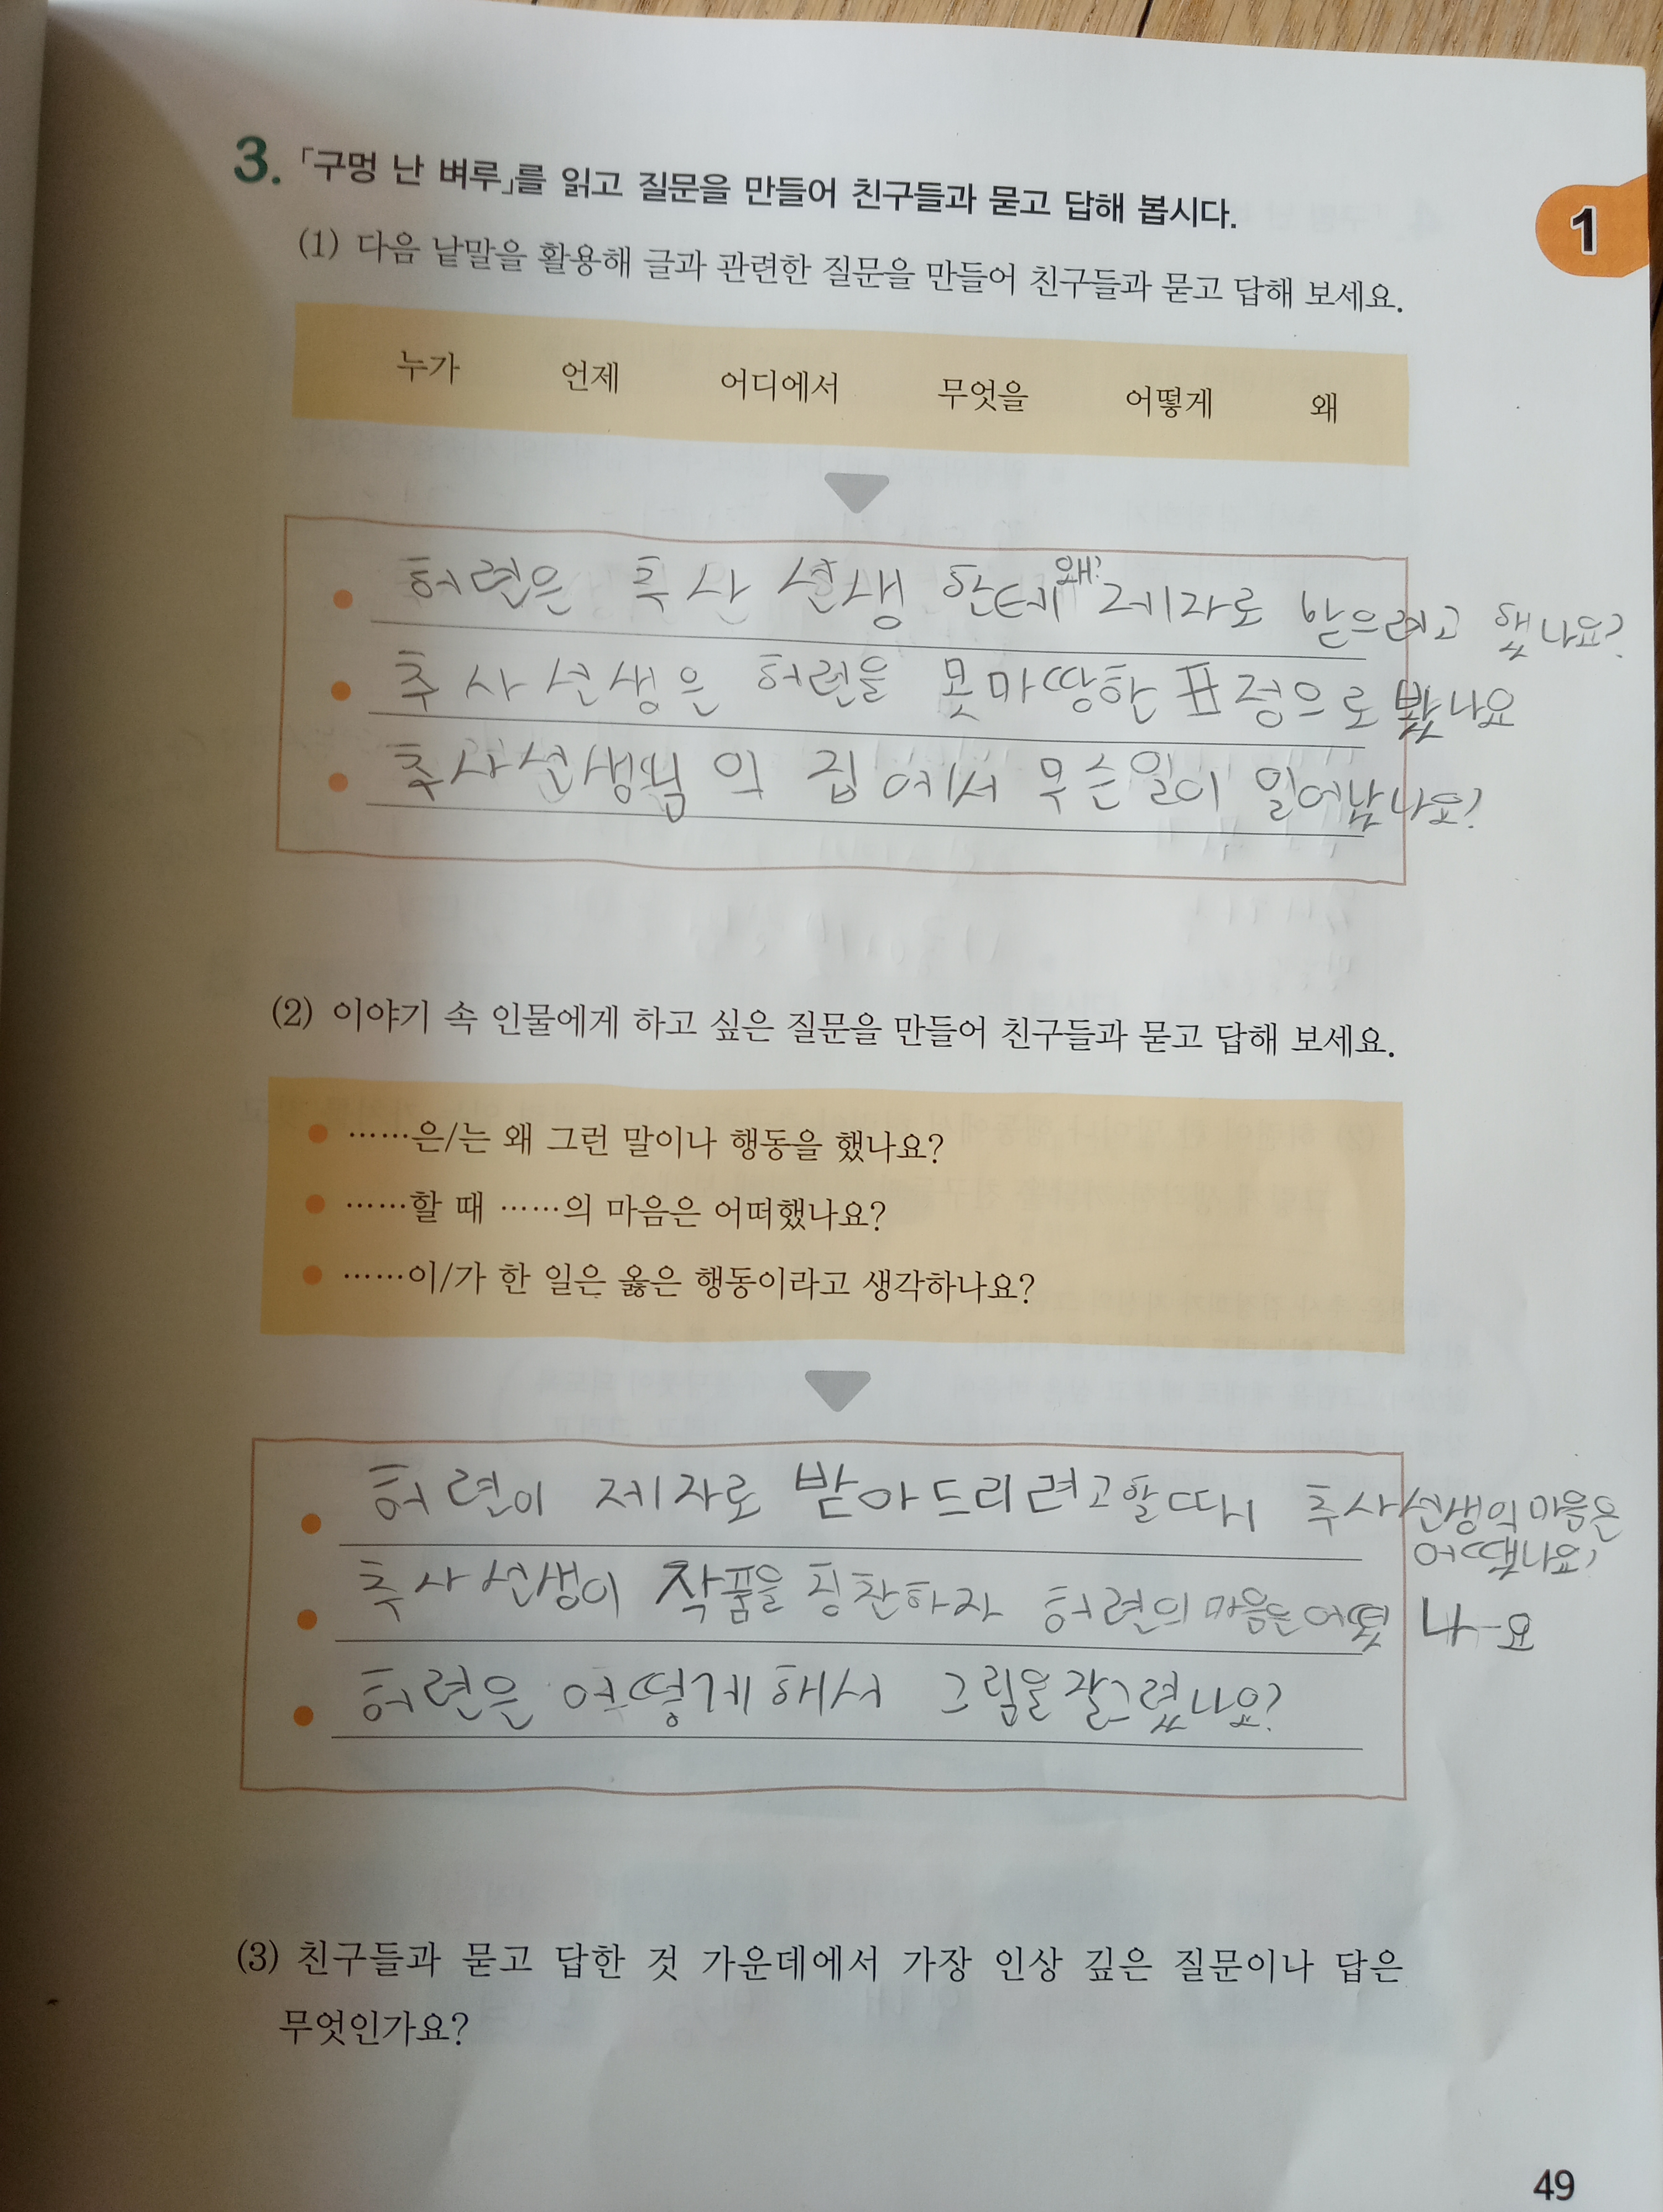 3. 「구멍 난 벼루」를 읽고 질문을 만들어 친구들과 묻고 답해 봅시다.
1
(1) 다음 낱말을 활용해 글과 관련한 질문을 만들어 친구들과 묻고 답해 보세요.
누가 언제 어디에서 무엇을 어떻게 왜
왜?
허련은 추사 선생 한테 제자로 받으려고 했나요?
추사선생은 허련을 못마땅한 표정으로 봤나요
추사선생님의 집에서 무슨일이 일어났나요?
(2) 이야기 속 인물에게 하고 싶은 질문을 만들어 친구들과 묻고 답해 보세요.
● ……은/는 왜 그런 말이나 행동을 했나요?
● ……할 때 ……의 마음은 어떠했나요?
● ……이/가 한 일은 옳은 행동이라고 생각하나요?
허련이 제자로 받아드리려고할때 추사선생의마음은
어땠나요?
추사선생이 작품을 칭찬하자 허련의마음은 나요
허련은 어떻게해서 그림을잘그렸나요?
(3) 친구들과 묻고 답한 것 가운데에서 가장 인상 깊은 질문이나 답은
무엇인가요?
49